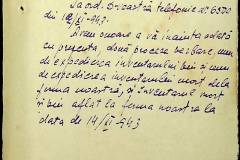 La o.d. D-voastră telefonic No 6370
din 12/XI-943.
Avem onoare a vă înainta odată
cu prezenta, două procese verbale, unul
de expedierea inventarului viu și unul
de expedierea inventarului mort dela
ferma noastră, și inventarul mort
și viu aflat la ferma noastră la
data de 14/XI-943